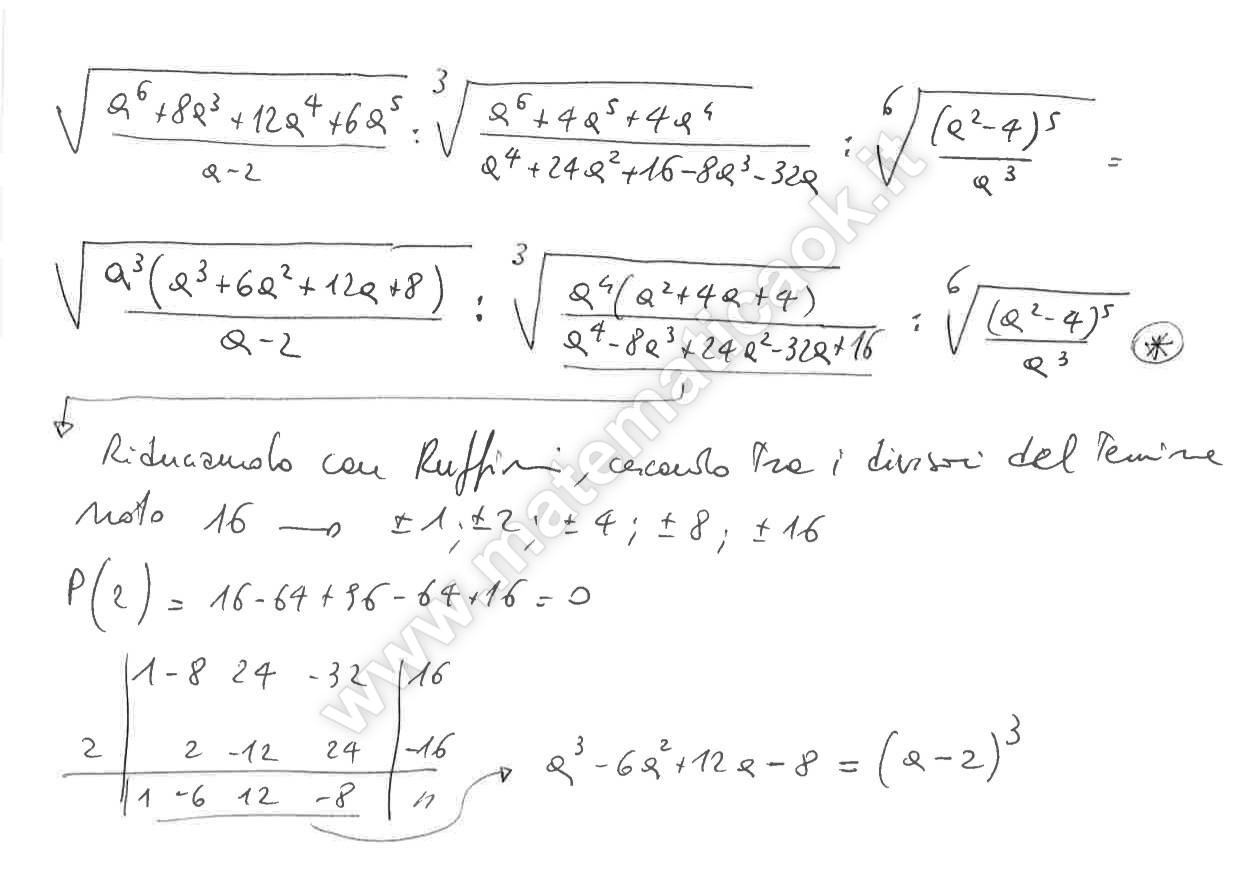 √((a⁶+8a³+12a⁴+6a⁵)/(a-2)) : ³√((a⁶+4a⁵+4a⁴)/(a⁴+24a²+16-8a³-32a)) : ⁶√((a²-4)⁵/a³) =
√((a³(a³+6a²+12a+8))/(a-2)) : ³√((a⁴(a²+4a+4))/(a⁴-8a³+24a²-32a+16)) : ⁶√((a²-4)⁵/a³) ⊛
Riduciamolo con Ruffini, cercando Tra i divisori del Termine
Noto 16 → ±1; ±2; ± 4; ± 8; ± 16
P(2) = 16-64+96-64+16 = 0
| 1 -8 24 -32 | 16
2 | 2 -12 24 | -16
| 1 -6 12 -8 | //
→ a³-6a²+12a-8 = (a-2)³
www.matematicaok.it